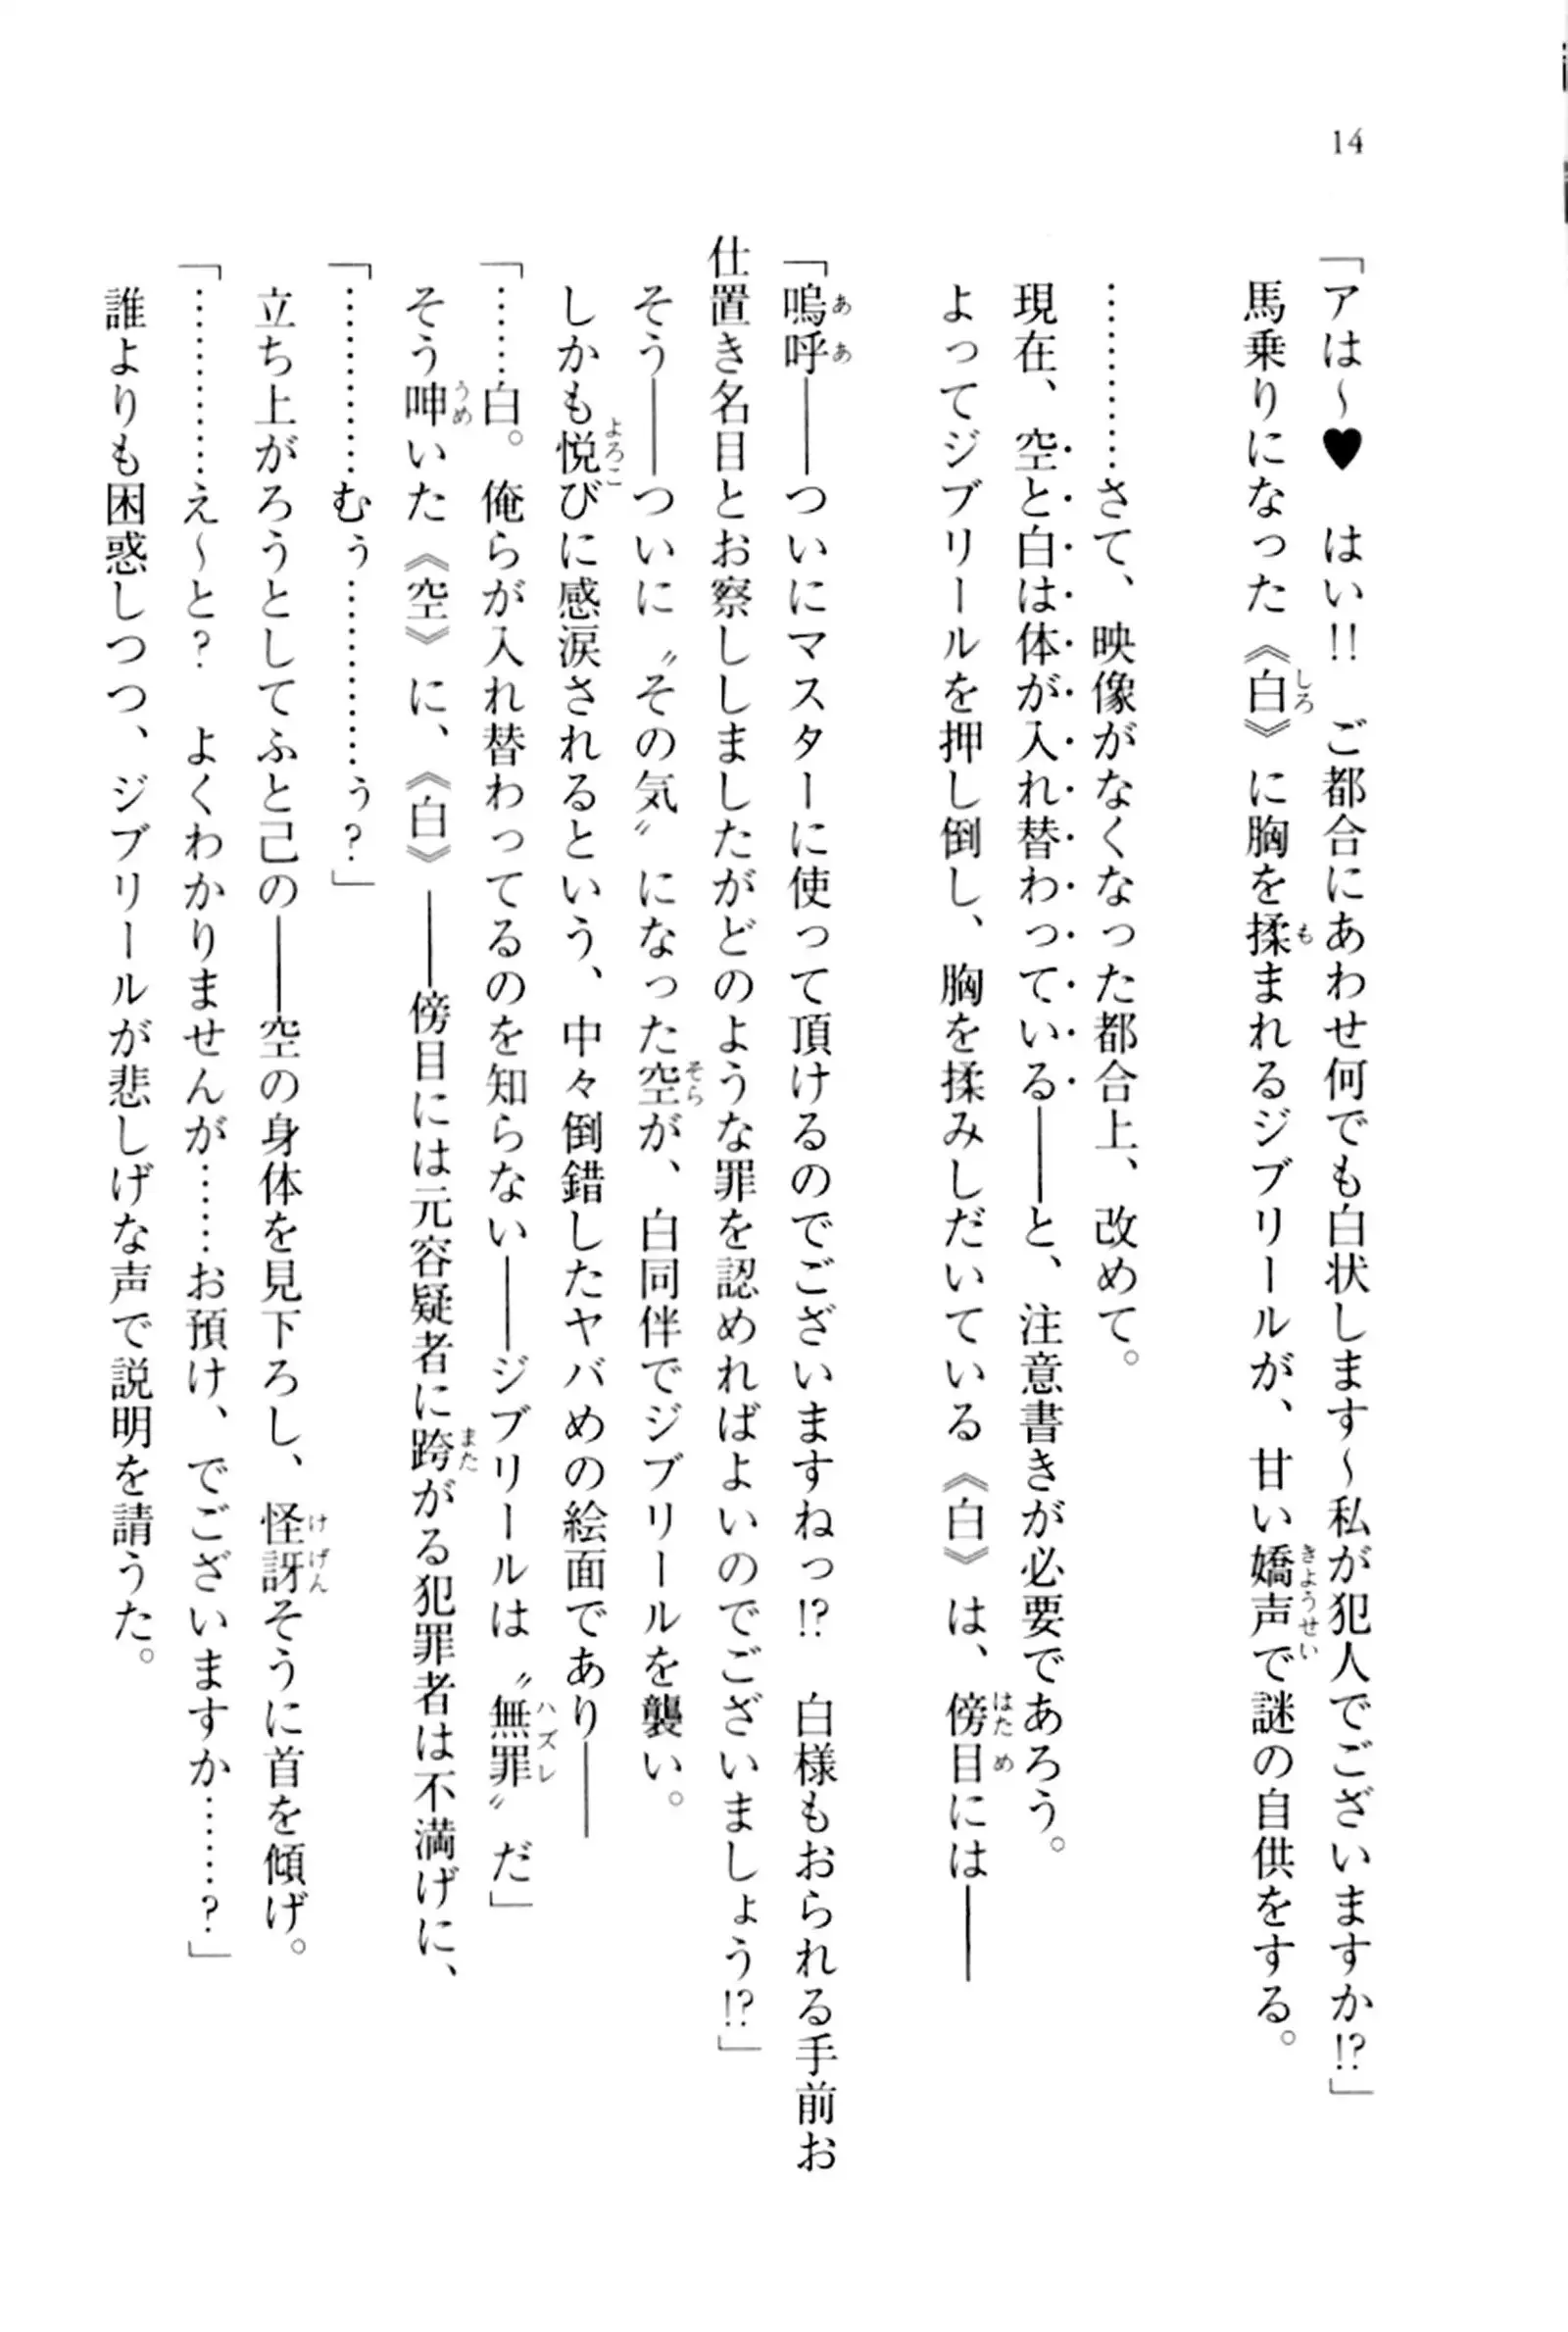 14
「アは～♥　はい!!　ご都合にあわせ何でも白状します～私が犯人でございますか!?」
馬乗りになった《白》に胸を揉まれるジブリールが、甘い嬌声で謎の自供をする。
…………さて、映像がなくなった都合上、改めて。
現在、空と白は体が入れ替わっている――と、注意書きが必要であろう。
よってジブリールを押し倒し、胸を揉みしだいている《白》は、傍目には――
「嗚呼――ついにマスターに使って頂けるのでございますねっ!?　白様もおられる手前お
仕置き名目とお察ししましたがどのような罪を認めればよいのでございましょう!?」
そう――ついに〝その気〟になった空が、白同伴でジブリールを襲い。
しかも悦びに感涙されるという、中々倒錯したヤバめの絵面であり――
「……白。俺らが入れ替わってるのを知らない――ジブリールは〝無罪〟だ」
そう呻いた《空》に、《白》――傍目には元容疑者に跨がる犯罪者は不満げに、
「…………むぅ…………う?」
立ち上がろうとしてふと己の――空の身体を見下ろし、怪訝そうに首を傾げ。
「…………え～と?　よくわかりませんが……お預け、でございますか……?」
誰よりも困惑しつつ、ジブリールが悲しげな声で説明を請うた。